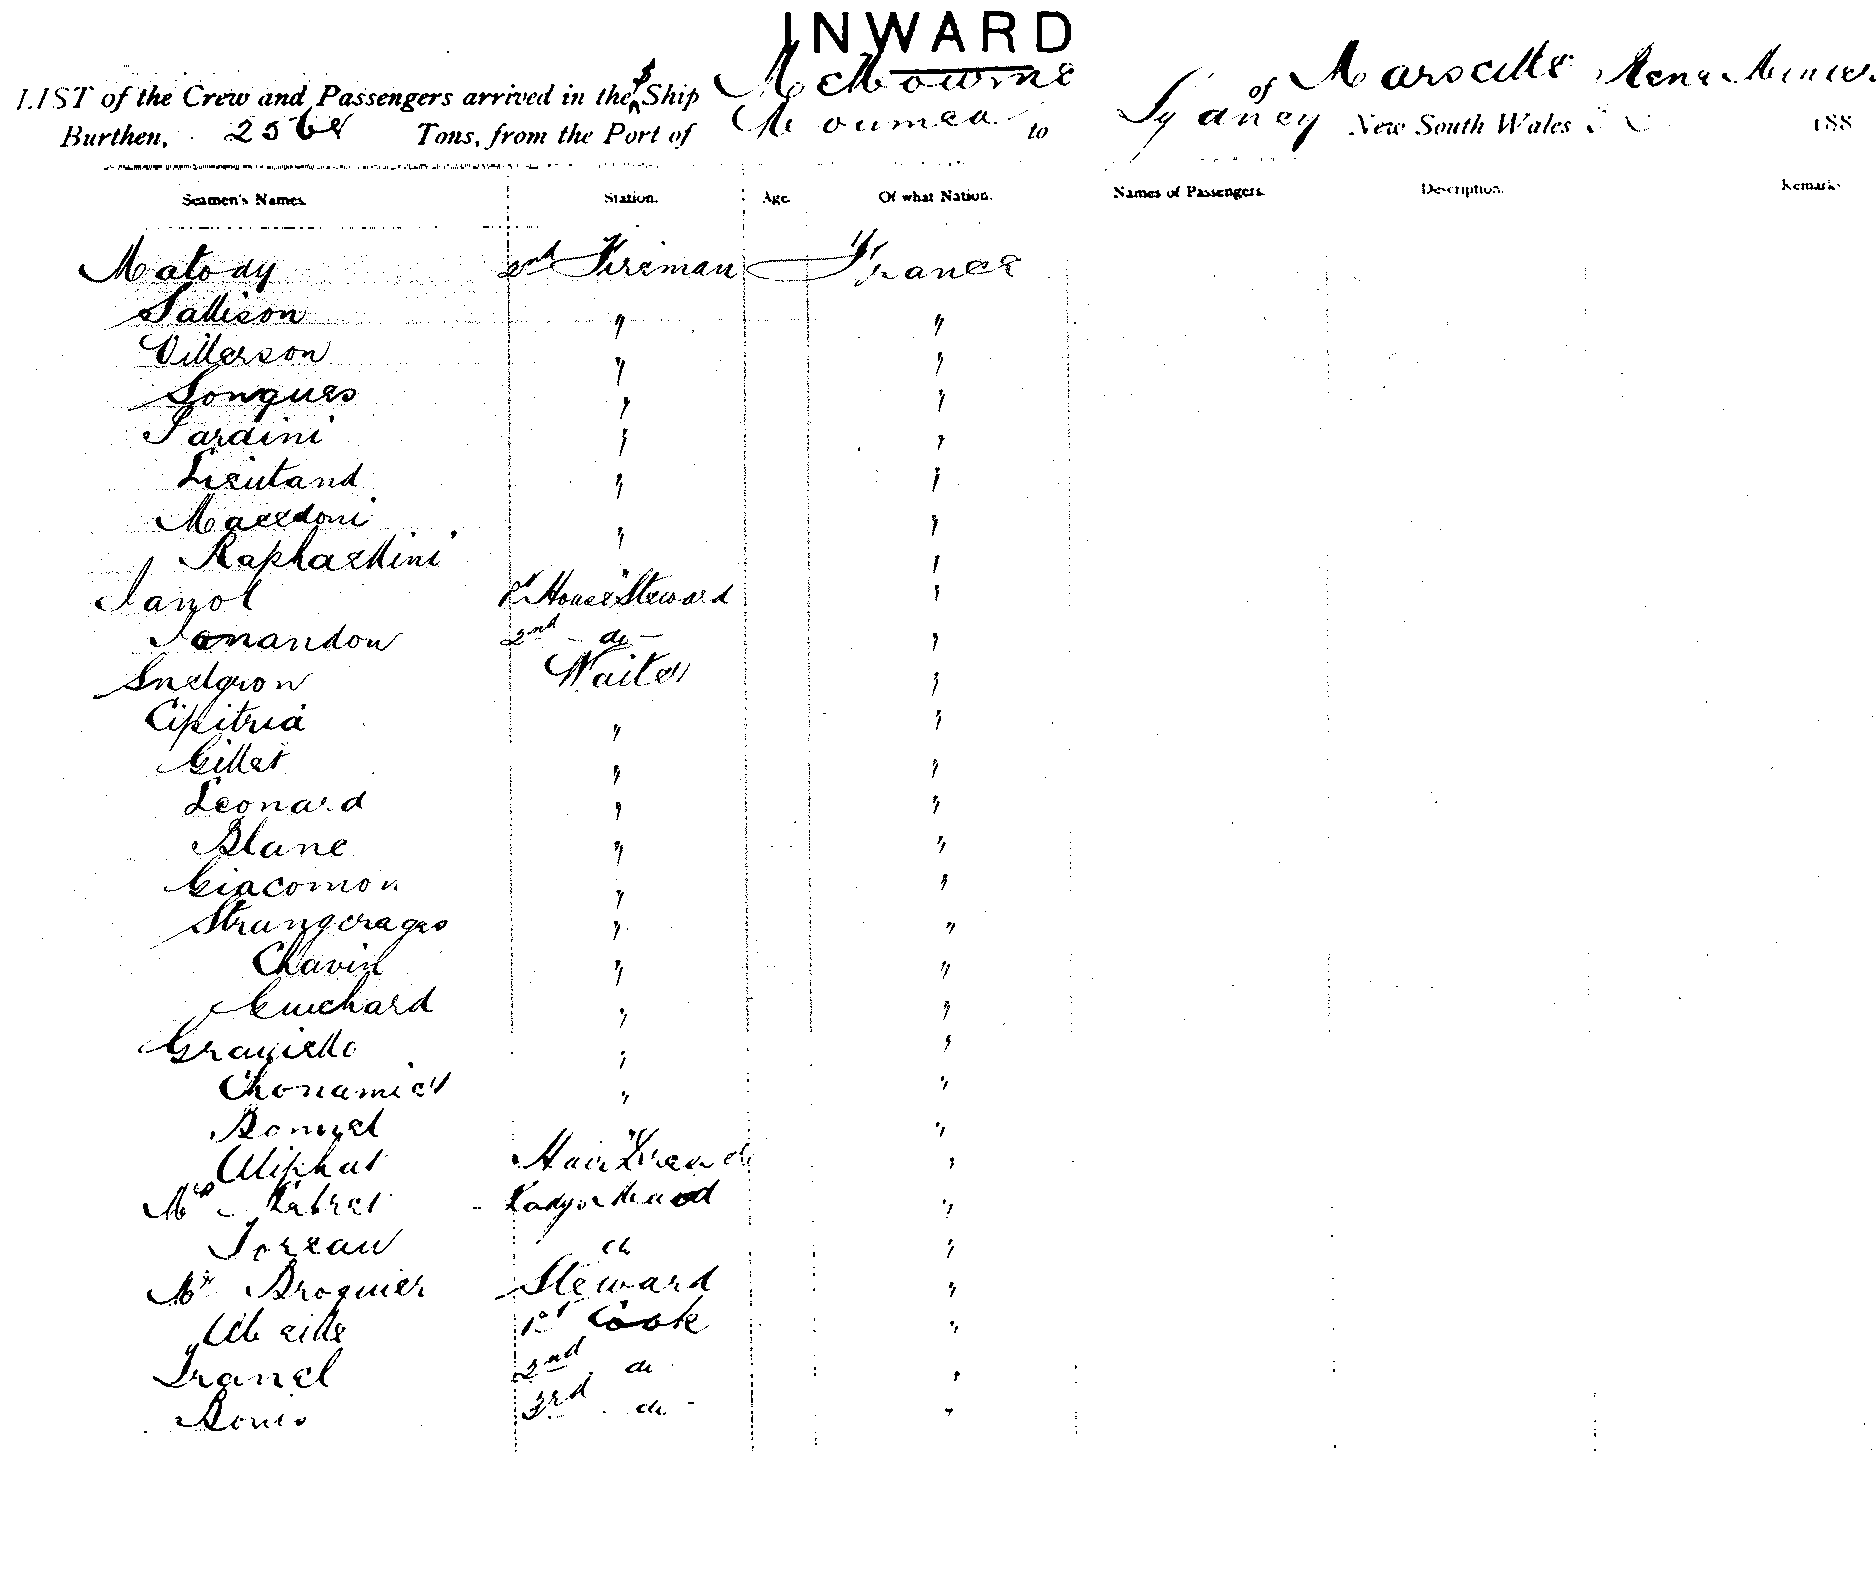 INWARD
LIST of the Crew and Passengers arrived in the S Ship Melbourne of Marseille
Burthen, 2568 Tons, from the Port of Noumea to Sydney New South Wales 188
Seamen's Names. Station. Age. Of what Nation. Names of Passengers. Description. Remarks
Matody 2nd Fireman France
Sallison " "
Villerson " "
Songues " "
Sardini " "
Lieutand " "
Macedoni " "
Raphaellini " "
Janol 1st House Steward "
2nd do "
Snelgron Waiter "
Cipitria " "
Gillet " "
Leonard " "
Blanc " "
Giacomon " "
Strungerages " "
Chavin " "
Guichard " "
Graziello " "
" "
" "
Aliphat Hair "
Mrs Labret "
Toreau do "
Mr Broquier Steward "
1st Cook "
2nd do "
Bonis 3rd do "